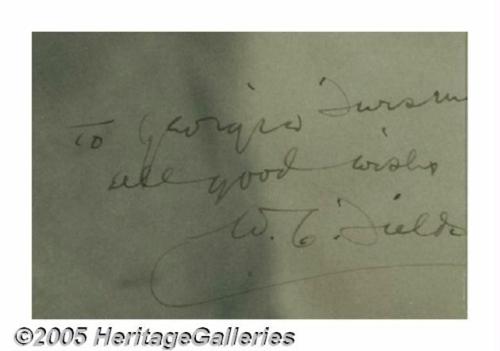 To Georgia
all good wishes
W. C. Fields
©2005 HeritageGalleries